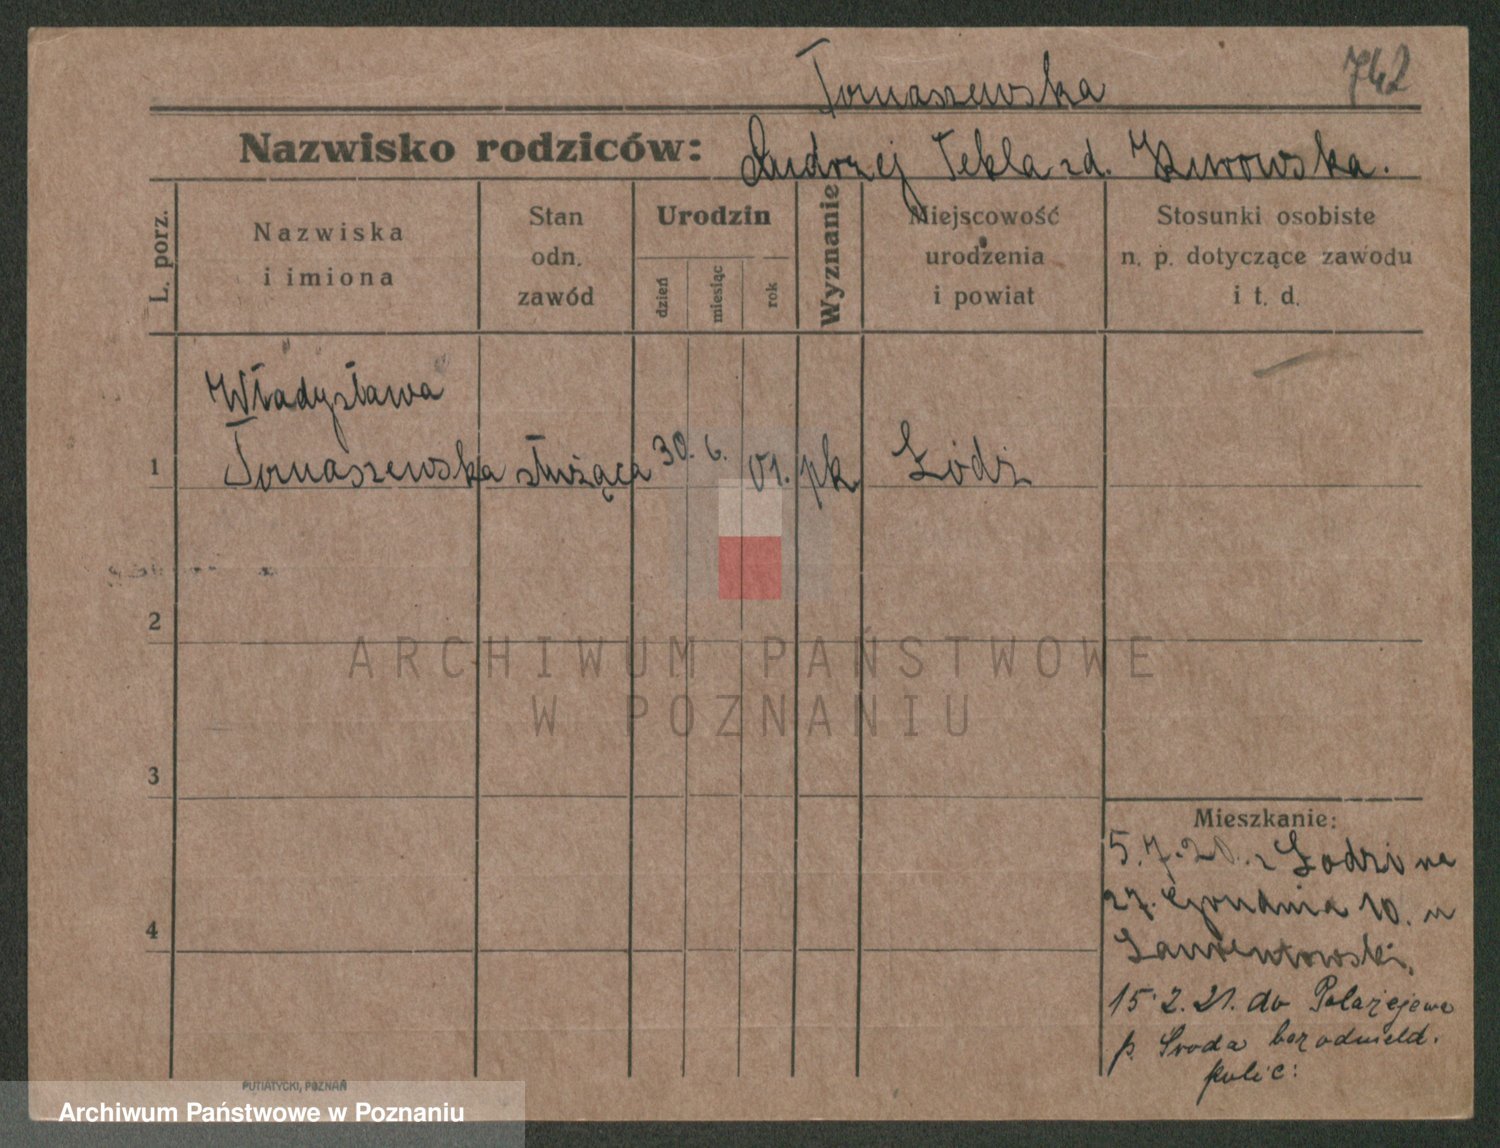 742
Tomaszewska
Nazwisko rodziców: Andrzej Tekla zd. Kurowska.
L. porz.
Nazwiska
i imiona
Stan
odn.
zawód
Urodzin
dzień
miesiąc
rok
Wyznanie
Miejscowość
urodzenia
i powiat
Stosunki osobiste
n. p. dotyczące zawodu
i t. d.
Władysława
1 Tomaszewska służąca 30. 6. 01. pk Łódź
2
3
4
Mieszkanie:
5.7.20. z Łodzi na
27. Grudnia 10. u
15.2.21. do Polażejewa
p. Środa bez odmeld.
polic:
PUTIATYCKI, POZNAŃ
ARCHIWUM PAŃSTWOWE
W POZNANIU
Archiwum Państwowe w Poznaniu